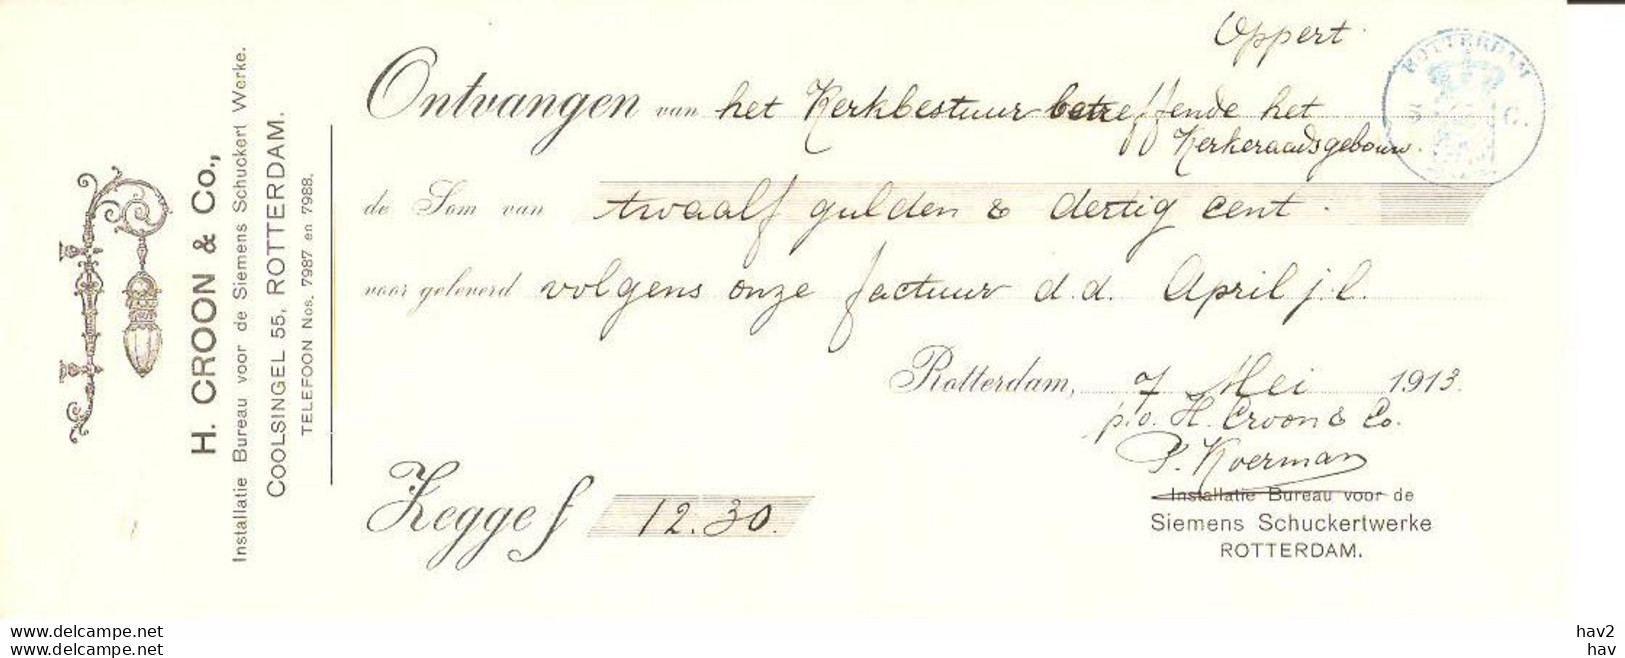 H. CROON & Co.,
Installatie Bureau voor de Siemens Schuckert Werke.
COOLSINGEL 55, ROTTERDAM.
TELEFOON Nos. 7987 en 7988.
Oppert.
ROTTERDAM
Ontvangen van het Kerkbestuur betreffende het
Kerkeraadsgebouw.
de Som van twaalf gulden & dertig cent.
voor geleverd volgens onze factuur d.d. April j.l.
Rotterdam, 7 Mei 1913.
p.o. H. Croon & Co.
P. Koerman
Installatie Bureau voor de
Siemens Schuckertwerke
ROTTERDAM.
Zegge f 12.30.
www.delcampe.net
www.delcampe.net
hav2
hav